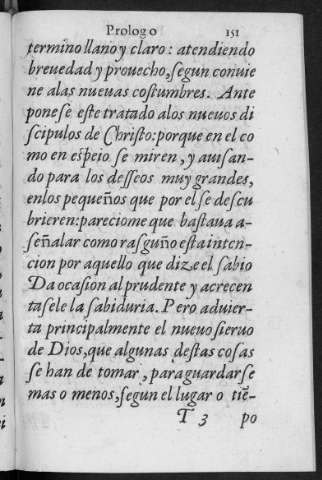 Prologo 151
termino llano y claro: atendiendo
breuedad y prouecho, segun conuie
ne alas nueuas costumbres. Ante
ponese este tratado alos nueuos di
scipulos de Christo: porque en el co
mo en espeio se miren, y auisan-
do para los desseos muy grandes,
enlos pequeños que por el se descu
brieren: pareciome que bastaua a-
señalar como rasguño esta inten-
cion por aquello que dize el sabio
Da ocasion al prudente y acrecen
tasele la sabiduria. Pero aduier-
ta principalmente el nueuo sieruo
de Dios, que algunas destas cosas
se han de tomar, para guardarse
mas o menos, segun el lugar o tiē-
T 3 po